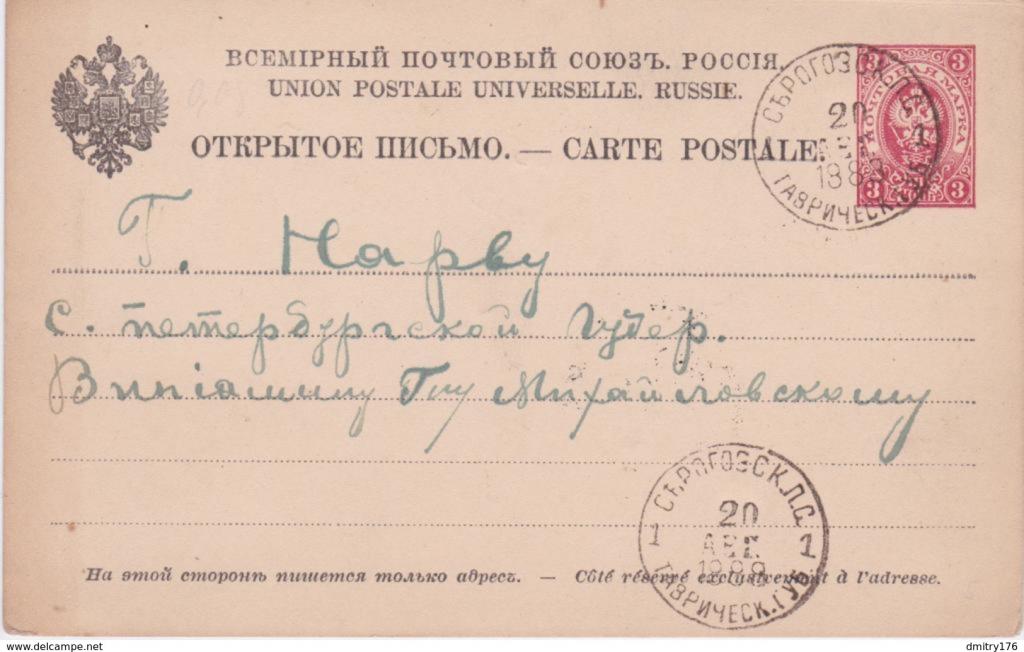 ВСЕМІРНЫЙ ПОЧТОВЫЙ СОЮЗЪ. РОССІЯ.
UNION POSTALE UNIVERSELLE. RUSSIE.
ОТКРЫТОЕ ПИСЬМО. — CARTE POSTALE.
3 3
ПОЧТОВАЯ МАРКА
3 3
СѢРОГОЗСК.
20
1
188
ТАВРИЧЕСК. ГУБ.
Г. Нарву
С. петербургской Губер.
Михайловскому
СѢРОГОЗСК.П.С.
20
1 АВГ. 1
1888
ТАВРИЧЕСК. ГУБ.
На этой сторонѣ пишется только адресъ. — Côté réservé exclusivement à l'adresse.
www.delcampe.net
dmitry176